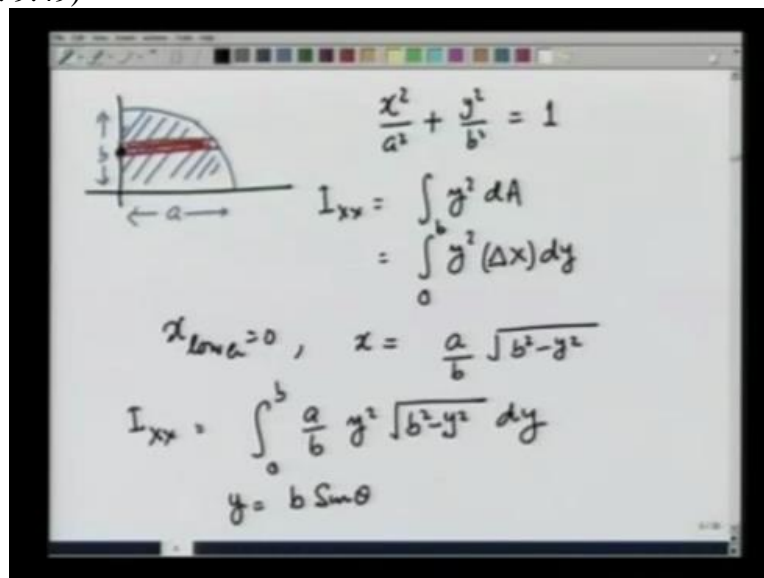 x²/a² + y²/b² = 1
b
← a →
I_xx = ∫ y² dA
= ∫₀ᵇ y² (Δx) dy
x_lower = 0 , x = a/b √(b²-y²)
I_xx = ∫₀ᵇ a/b y² √(b²-y²) dy
y = b Sinθ